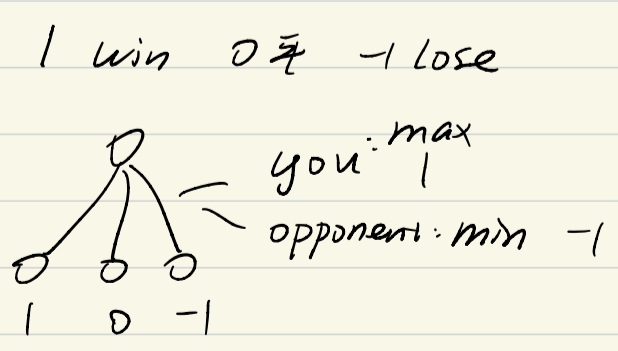 1 win 0平 -1 lose
you: max
1
opponent: min -1
1 0 -1